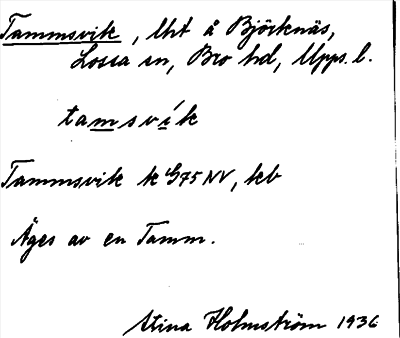 Tammsvik, lht å Björknäs,
Lossa sn, Bro hd, Upps. l.
tamsvík
Tammsvik k G75 NV, kb
Äges av en Tamm.
Stina Holmström 1936